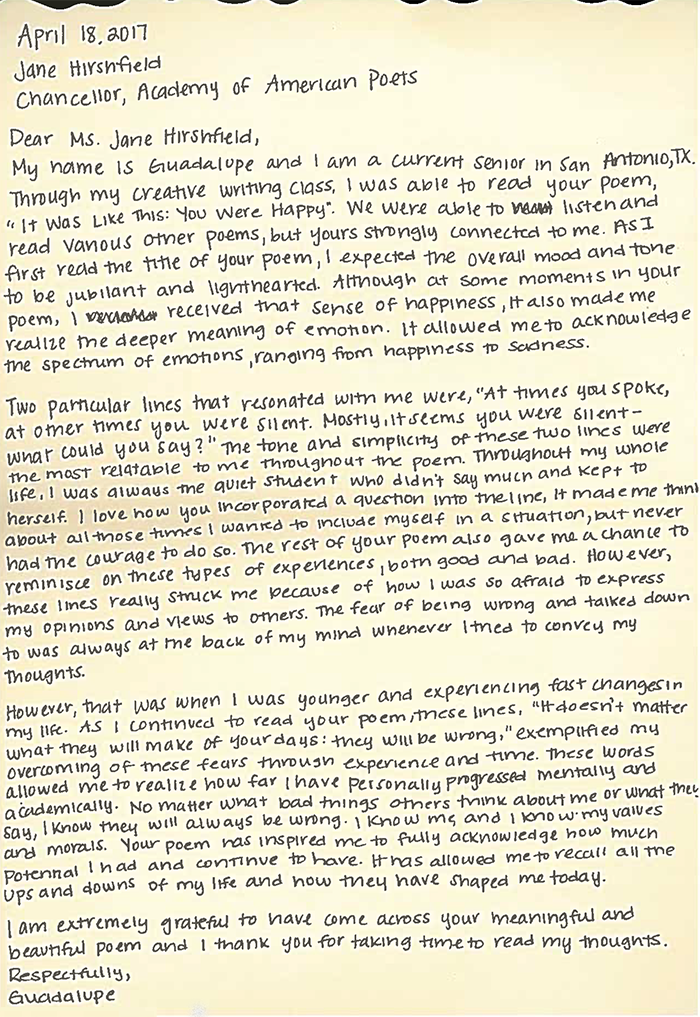 April 18, 2017
Jane Hirshfield
Chancellor, Academy of American Poets
Dear Ms. Jane Hirshfield,
My name is Guadalupe and I am a current senior in San Antonio, TX.
Through my creative writing class, I was able to read your poem,
"It Was Like This: You Were Happy". We were able to listen and
read various other poems, but yours strongly connected to me. As I
first read the title of your poem, I expected the overall mood and tone
to be jubilant and lighthearted. Although at some moments in your
poem, I received that sense of happiness, it also made me
realize the deeper meaning of emotion. It allowed me to acknowledge
the spectrum of emotions, ranging from happiness to sadness.
Two particular lines that resonated with me were, "At times you spoke,
at other times you were silent. Mostly, it seems you were silent-
what could you say?" The tone and simplicity of these two lines were
the most relatable to me throughout the poem. Throughout my whole
life, I was always the quiet student who didn't say much and kept to
herself. I love how you incorporated a question into the line, it made me think
about all those times I wanted to include myself in a situation, but never
had the courage to do so. The rest of your poem also gave me a chance to
reminisce on these types of experiences, both good and bad. However,
these lines really struck me because of how I was so afraid to express
my opinions and views to others. The fear of being wrong and talked down
to was always at the back of my mind whenever I tried to convey my
thoughts.
However, that was when I was younger and experiencing fast changes in
my life. As I continued to read your poem, these lines, "It doesn't matter
what they will make of your days: they will be wrong," exemplified my
overcoming of these fears through experience and time. These words
allowed me to realize how far I have personally progressed mentally and
academically. No matter what bad things others think about me or what they
say, I know they will always be wrong. I know me, and I know my values
and morals. Your poem has inspired me to fully acknowledge how much
potential I had and continue to have. It has allowed me to recall all the
ups and downs of my life and how they have shaped me today.
I am extremely grateful to have come across your meaningful and
beautiful poem and I thank you for taking time to read my thoughts.
Respectfully,
Guadalupe